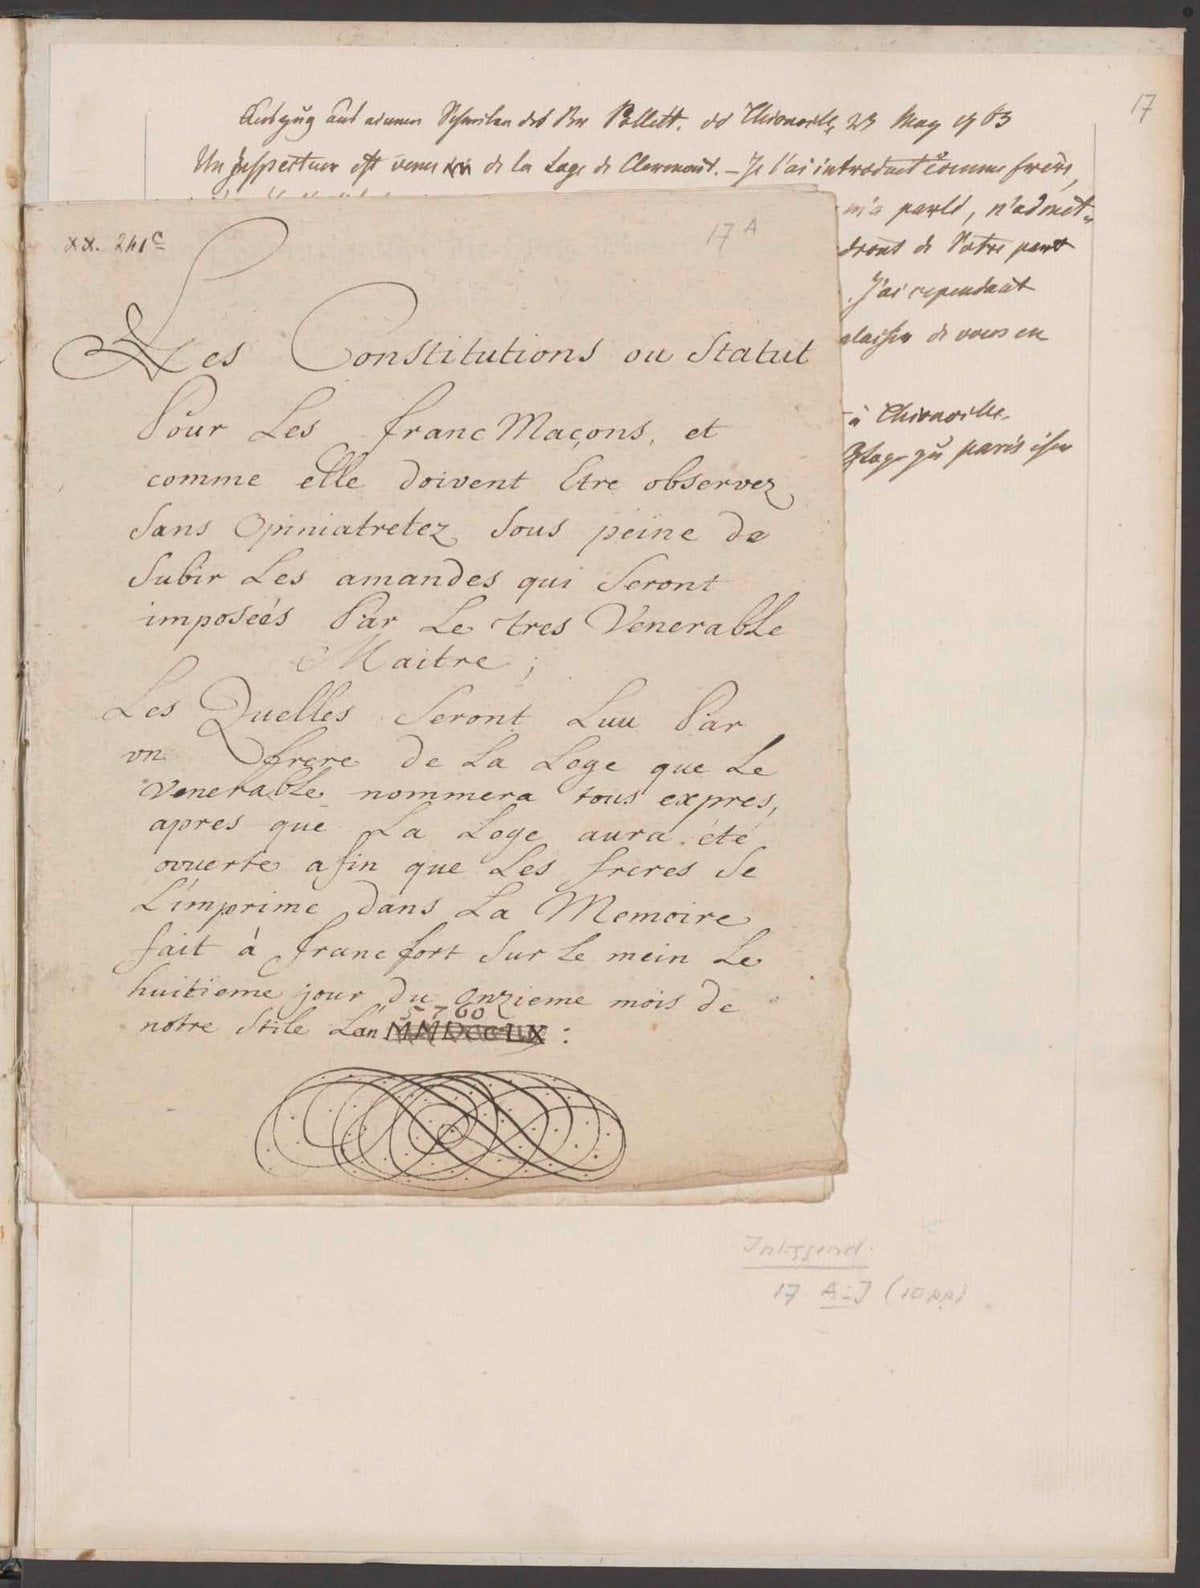 17
Auszug aus einem Schreiben des Br Pollett. dd Thionville 23 May 1763
Un Inspecteur est venu de la Loge de Clermont. – Je l'ai introduit comme frere,
m'a parlé, n'admet-
dront de Votre part
. J'ai cependant
plaisir de vous en
- à Thionville.
paris
XX. 241c
17 A
Les Constitutions ou Statut
Pour Les franc Maçons, et
comme elle doivent Etre observez
Sans Opiniatretez Sous peine de
Subir Les amandes qui Seront
imposéés Par Le tres Venerable
Maitre ;
Les Quelles Seront Luu Par
vn frere de La Loge que Le
Venerable nommera tous expres,
apres que La Loge aura été
ouuerte afin que Les freres Se
L'imprime dans La Memoire
fait à francfort Sur Le mein Le
huitieme jour du onzieme mois de
5760
notre Stile L'an MMDCCLIX :
17 A-J (10 pp)